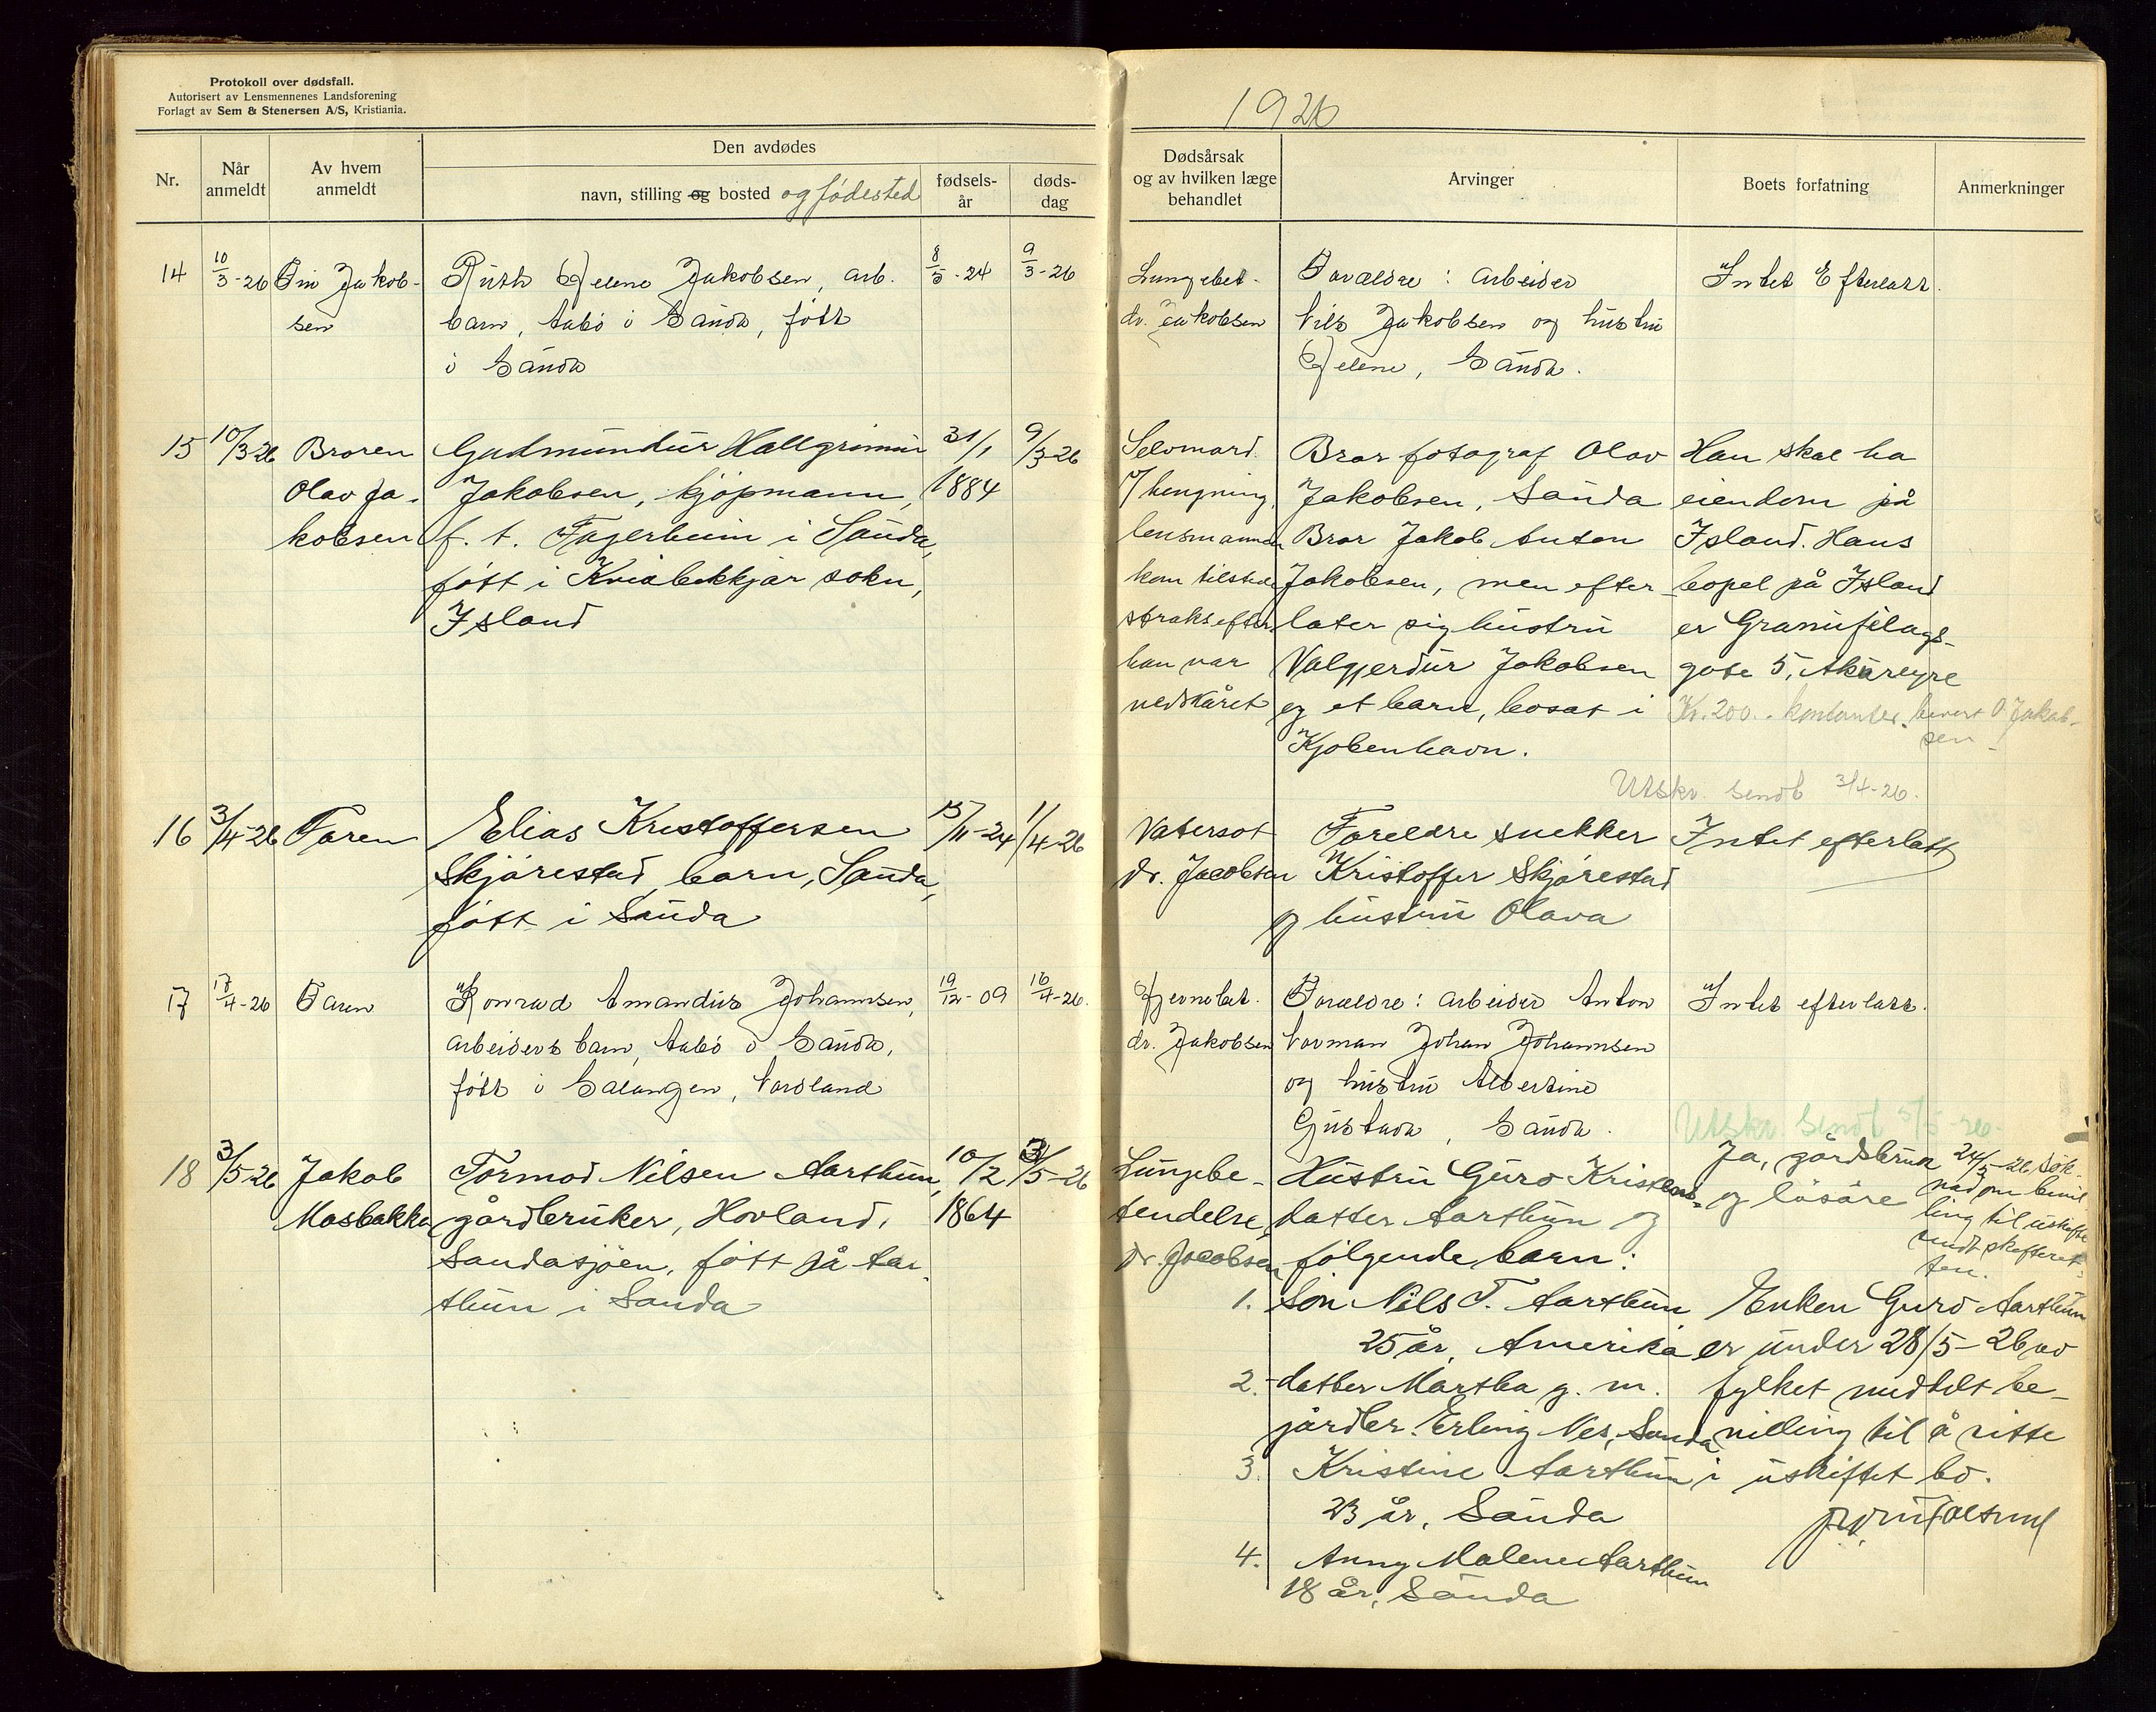 Protokoll over dødsfall.
Autorisert av Lensmennenes Landsforening
Forlagt av Sem & Stenersen A/S, Kristiania.
1926
Nr.
Når anmeldt
Av hvem anmeldt
Den avdødes
navn, stilling og bosted og fødested
fødsels-år
døds-dag
Dødsårsak og av hvilken læge behandlet
Arvinger
Boets forfatning
Anmerkninger
14
10/3-26
Jakob-
sen
Ruth Helene Jakobsen, arb.
barn, Aabø i Sauda, født
i Sauda
8/5-24
9/3-26
Lungebet.
dr. Jakobsen
Forældre: arbeider
Nils Jakobsen og hustru
Helene, Sauda.
Intet Efterlatt.
15
10/3-26
Broren
Olav Ja-
kobsen
Gudmundur Hallgrimur
Jakobsen, kjøpmann,
f. t. Fagerheim i Sauda,
født i Kviabekkjar sokn,
Island
31/1
1884
9/3-26
Selvmord
v/ hengning,
lensmannen
kom tilstede
straks efter
han var
nedskåret
Bror fotograf Olav
Jakobsen, Sauda
Bror Jakob Anton
Jakobsen, men efter-
later sig hustru
Valgjerdur Jakobsen
og et barn, bosat i
Kjøbenhavn.
Han skal ha
eiendom på
Island. Hans
bopel på Island
er Granufelags-
gote 5, Akureyre
Kr. 200.- kontanter O. Jakob-
sen
Utskr. sendt 3/4-26.
16
3/4-26
Faren
Elias Kristoffersen
Skjørestad, barn, Sauda,
født i Sauda
15/11-24
1/4-26
Vatersot
dr. Jacobsen
Foreldre snekker
Kristoffer Skjørestad
og hustru Olava
Intet efterlatt
17
17/4-26
Faren
Konrad Amandus Johannsen,
arbeiders barn, Aabø i Sauda,
født i Salangen, Nordland
19/12-09
16/4-26.
Hjernebet.
dr. Jakobsen
Forældre: arbeider Anton
Norman Johan Johannsen
og hustru Albertine
Gustava, Sauda.
Intet efterlatt.
Utskr. sendt 5/5-26.
18
3/5-26
Jakob
Mosbakka
Tormod Nilsen Aarthun,
gårdbruker, Hovland,
Saudasjøen, født på Aar-
thun i Sauda
10/2
1864
3/5-26
Lungebe-
tendelse,
dr. Jacobsen
Hustru Guro Kristens-
datter Aarthun og
følgende barn:
1. Søn Nils T. Aarthun
25 år, Amerika
2. datter Martha g. m.
gårdbr. Erling Nes, Sauda
3. Kristine Aarthun
23 år, Sauda
4. Anny Malene Aarthun
18 år, Sauda
Ja, gårdsbruk
og løsøre
24/5-26 søk-
nad om bevil-
ling til uskifte
sendt skifteret-
ten.
Enken Guro Aarthun
er under 28/5-26 av
fylket meddelt be-
villing til å sitte
i uskiftet bo.